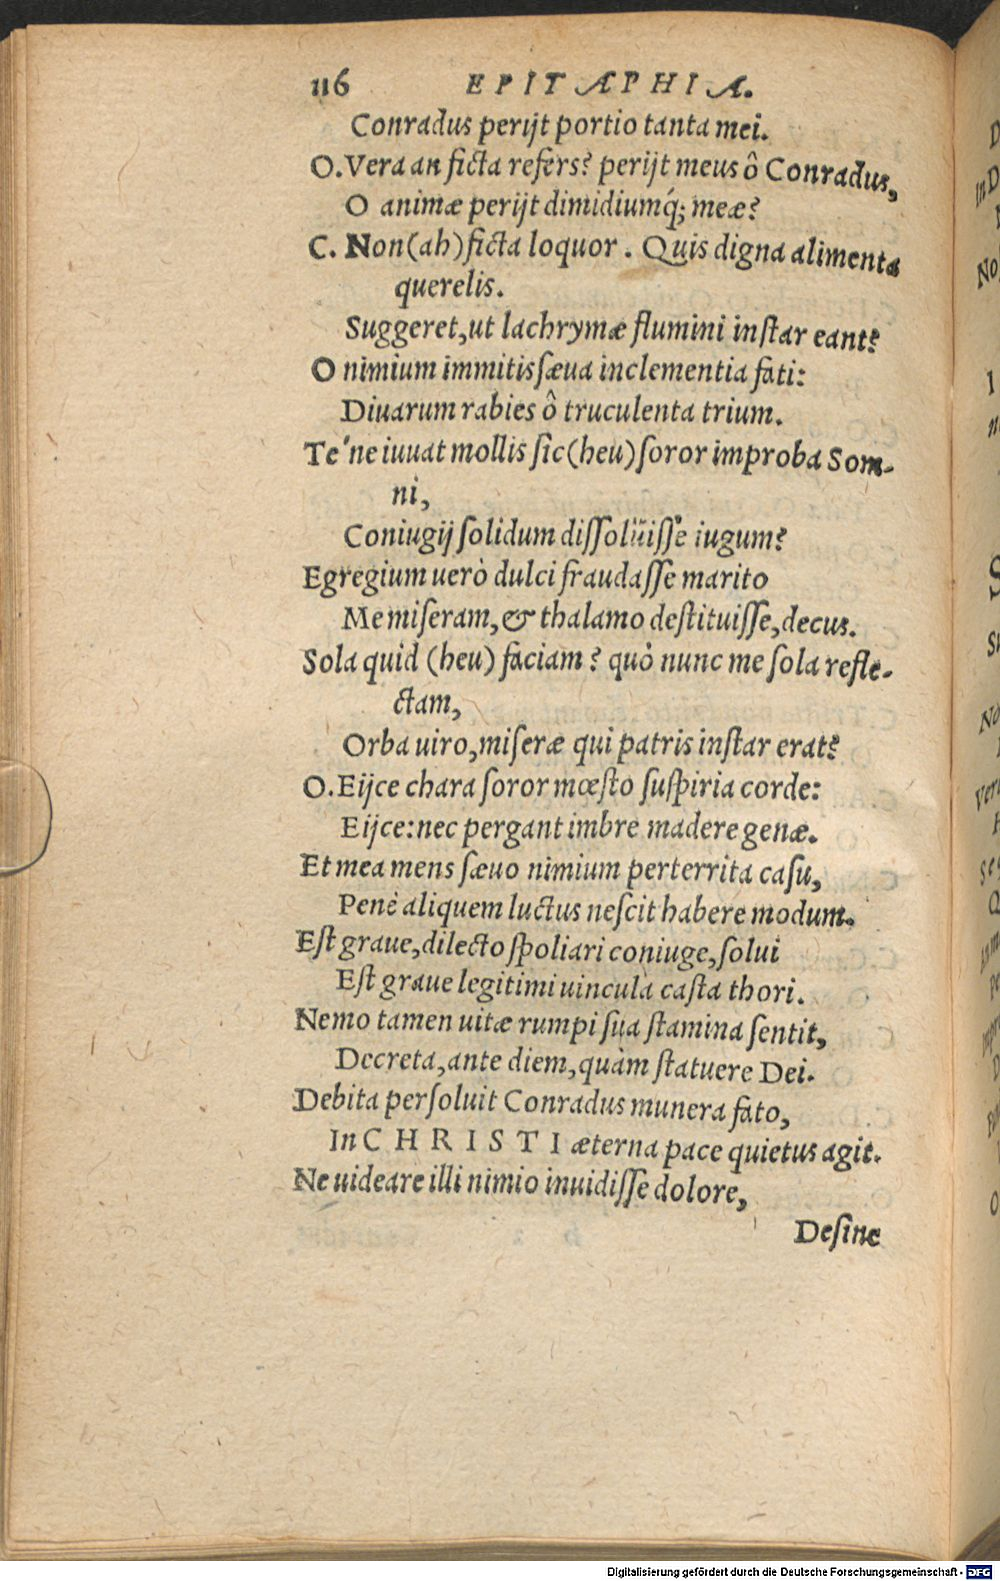 116 EPITAPHIA.
Conradus perijt portio tanta mei.
O. Vera an ficta refers? perijt meus ô Conradus,
O animæ perijt dimidiumq́; meæ?
C. Non (ah) ficta loquor. Quis digna alimenta
querelis.
Suggeret, ut lachrymæ flumini inſtar eant?
O nimium immitis ſæua inclementia fati:
Diuarum rabies ô truculenta trium.
Te'ne iuuat mollis ſic (heu) ſoror improba Som-
ni,
Coniugij ſolidum diſſoluiſſe iugum?
Egregium uerò dulci fraudaſſe marito
Me miſeram, & thalamo deſtituiſſe, decus.
Sola quid (heu) faciam? quò nunc me ſola refle-
ctam,
Orba uiro, miſeræ qui patris inſtar erat?
O. Eijce chara ſoror mœſto ſuſpiria corde:
Eijce: nec pergant imbre madere genæ.
Et mea mens ſæuo nimium perterrita caſu,
Penè aliquem luctus neſcit habere modum.
Eſt graue, dilecto ſpoliari coniuge, ſolui
Eſt graue legitimi uincula caſta thori.
Nemo tamen uitæ rumpi ſua ſtamina ſentit,
Decreta, ante diem, quàm ſtatuere Dei.
Debita perſoluit Conradus munera fato,
In CHRISTI æterna pace quietus agit.
Ne uideare illi nimio inuidiſſe dolore,
Deſine
Digitalisierung gefördert durch die Deutsche Forschungsgemeinschaft - DFG